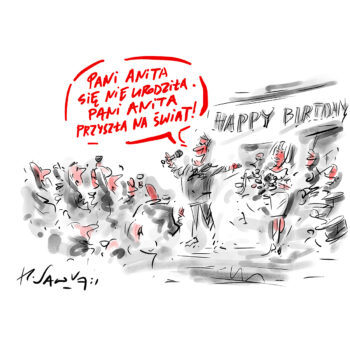 PANI ANITA
SIĘ NIE URODZIŁA.
PANI ANITA
PRZYSZŁA NA ŚWIAT!
HAPPY BIRTDAY